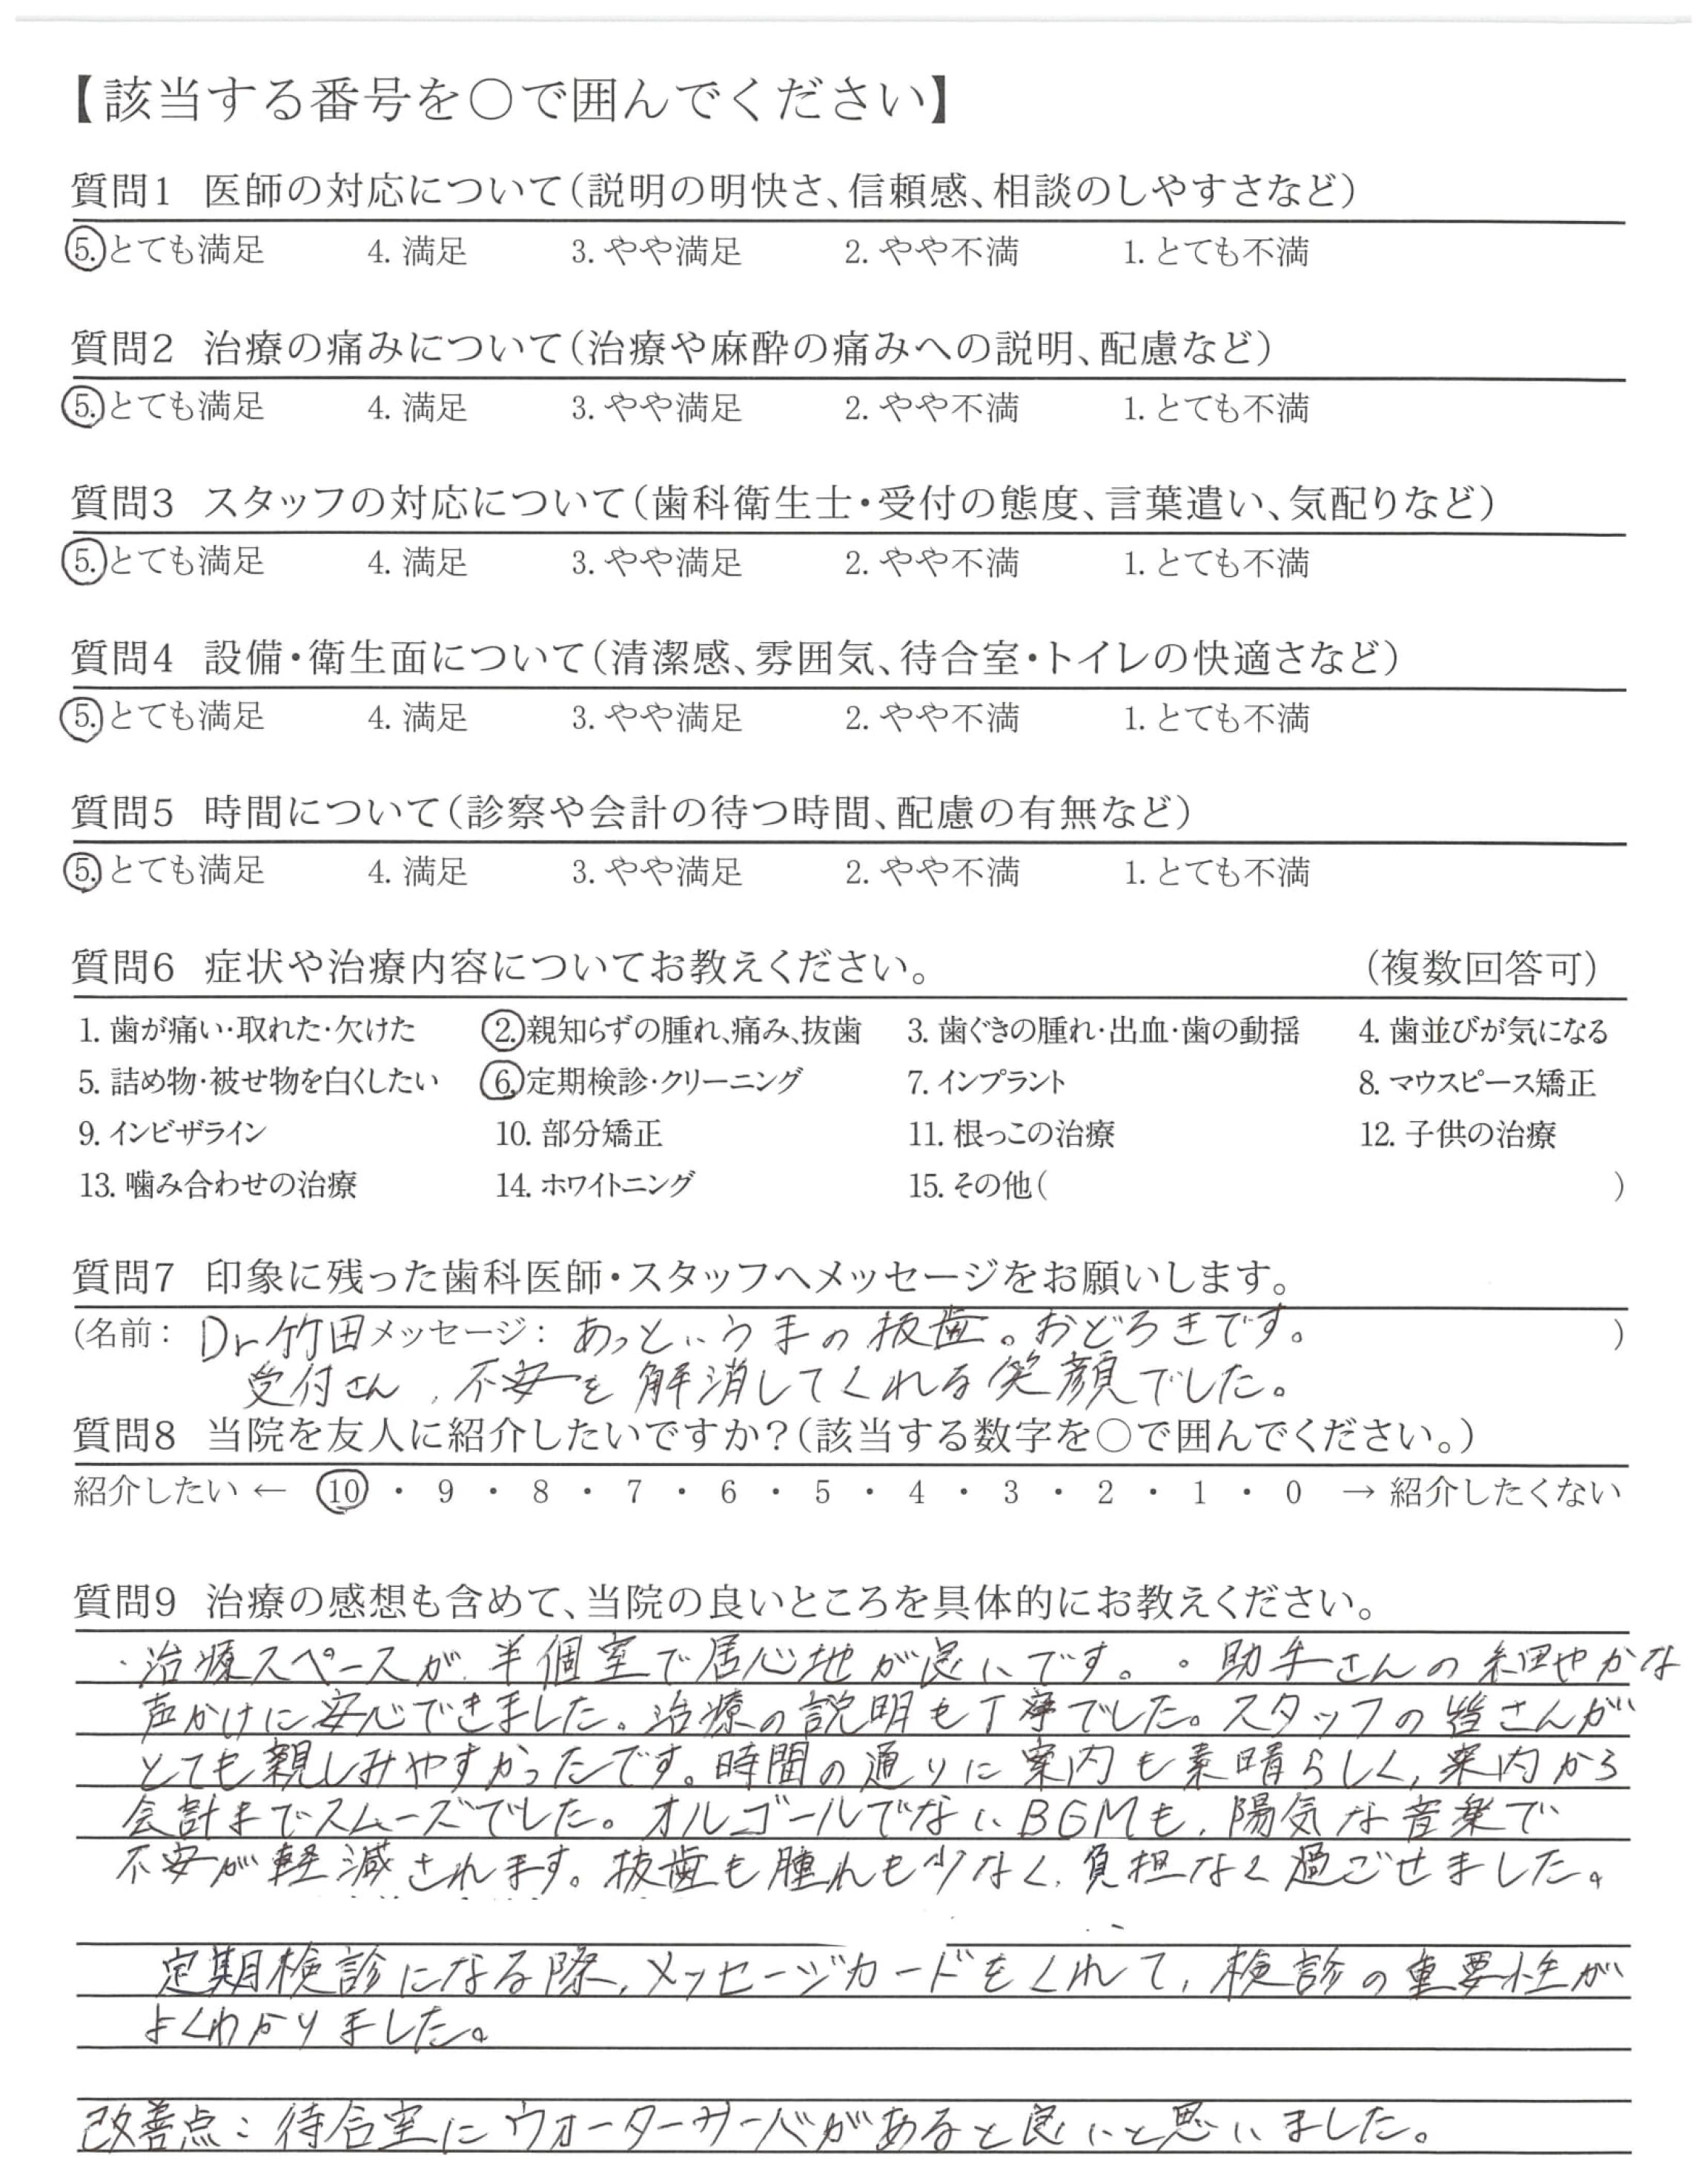 【該当する番号を○で囲んでください】
質問1 医師の対応について(説明の明快さ、信頼感、相談のしやすさなど)
5. とても満足 4. 満足 3. やや満足 2. やや不満 1. とても不満
質問2 治療の痛みについて(治療や麻酔の痛みへの説明、配慮など)
5. とても満足 4. 満足 3. やや満足 2. やや不満 1. とても不満
質問3 スタッフの対応について(歯科衛生士・受付の態度、言葉遣い、気配りなど)
5. とても満足 4. 満足 3. やや満足 2. やや不満 1. とても不満
質問4 設備・衛生面について(清潔感、雰囲気、待合室・トイレの快適さなど)
5. とても満足 4. 満足 3. やや満足 2. やや不満 1. とても不満
質問5 時間について(診察や会計の待つ時間、配慮の有無など)
5. とても満足 4. 満足 3. やや満足 2. やや不満 1. とても不満
質問6 症状や治療内容についてお教えください。 (複数回答可)
1. 歯が痛い・取れた・欠けた 2. 親知らずの腫れ、痛み、抜歯 3. 歯ぐきの腫れ・出血・歯の動揺 4. 歯並びが気になる
5. 詰め物・被せ物を白くしたい 6. 定期検診・クリーニング 7. インプラント 8. マウスピース矯正
9. インビザライン 10. 部分矯正 11. 根っこの治療 12. 子供の治療
13. 噛み合わせの治療 14. ホワイトニング 15. その他( )
質問7 印象に残った歯科医師・スタッフへメッセージをお願いします。
(名前: Dr竹田 メッセージ: あっというまの抜歯。おどろきです。 )
受付さん、不安を解消してくれる笑顔でした。
質問8 当院を友人に紹介したいですか?(該当する数字を○で囲んでください。)
紹介したい ← 10 ・ 9 ・ 8 ・ 7 ・ 6 ・ 5 ・ 4 ・ 3 ・ 2 ・ 1 ・ 0 → 紹介したくない
質問9 治療の感想も含めて、当院の良いところを具体的にお教えください。
・治療スペースが、半個室で居心地が良いです。・助手さんの細やかな
声かけに安心できました。治療の説明も丁寧でした。スタッフの皆さんが
とても親しみやすかったです。時間の通りに案内も素晴らしく、案内から
会計までスムーズでした。オルゴールでないBGMも、陽気な音楽で
不安が軽減されます。抜歯も腫れも少なく、負担なく過ごせました。
定期検診になる際、メッセージカードをくれて、検診の重要性が
よくわかりました。
改善点:待合室にウォーターサーバがあると良いと思いました。